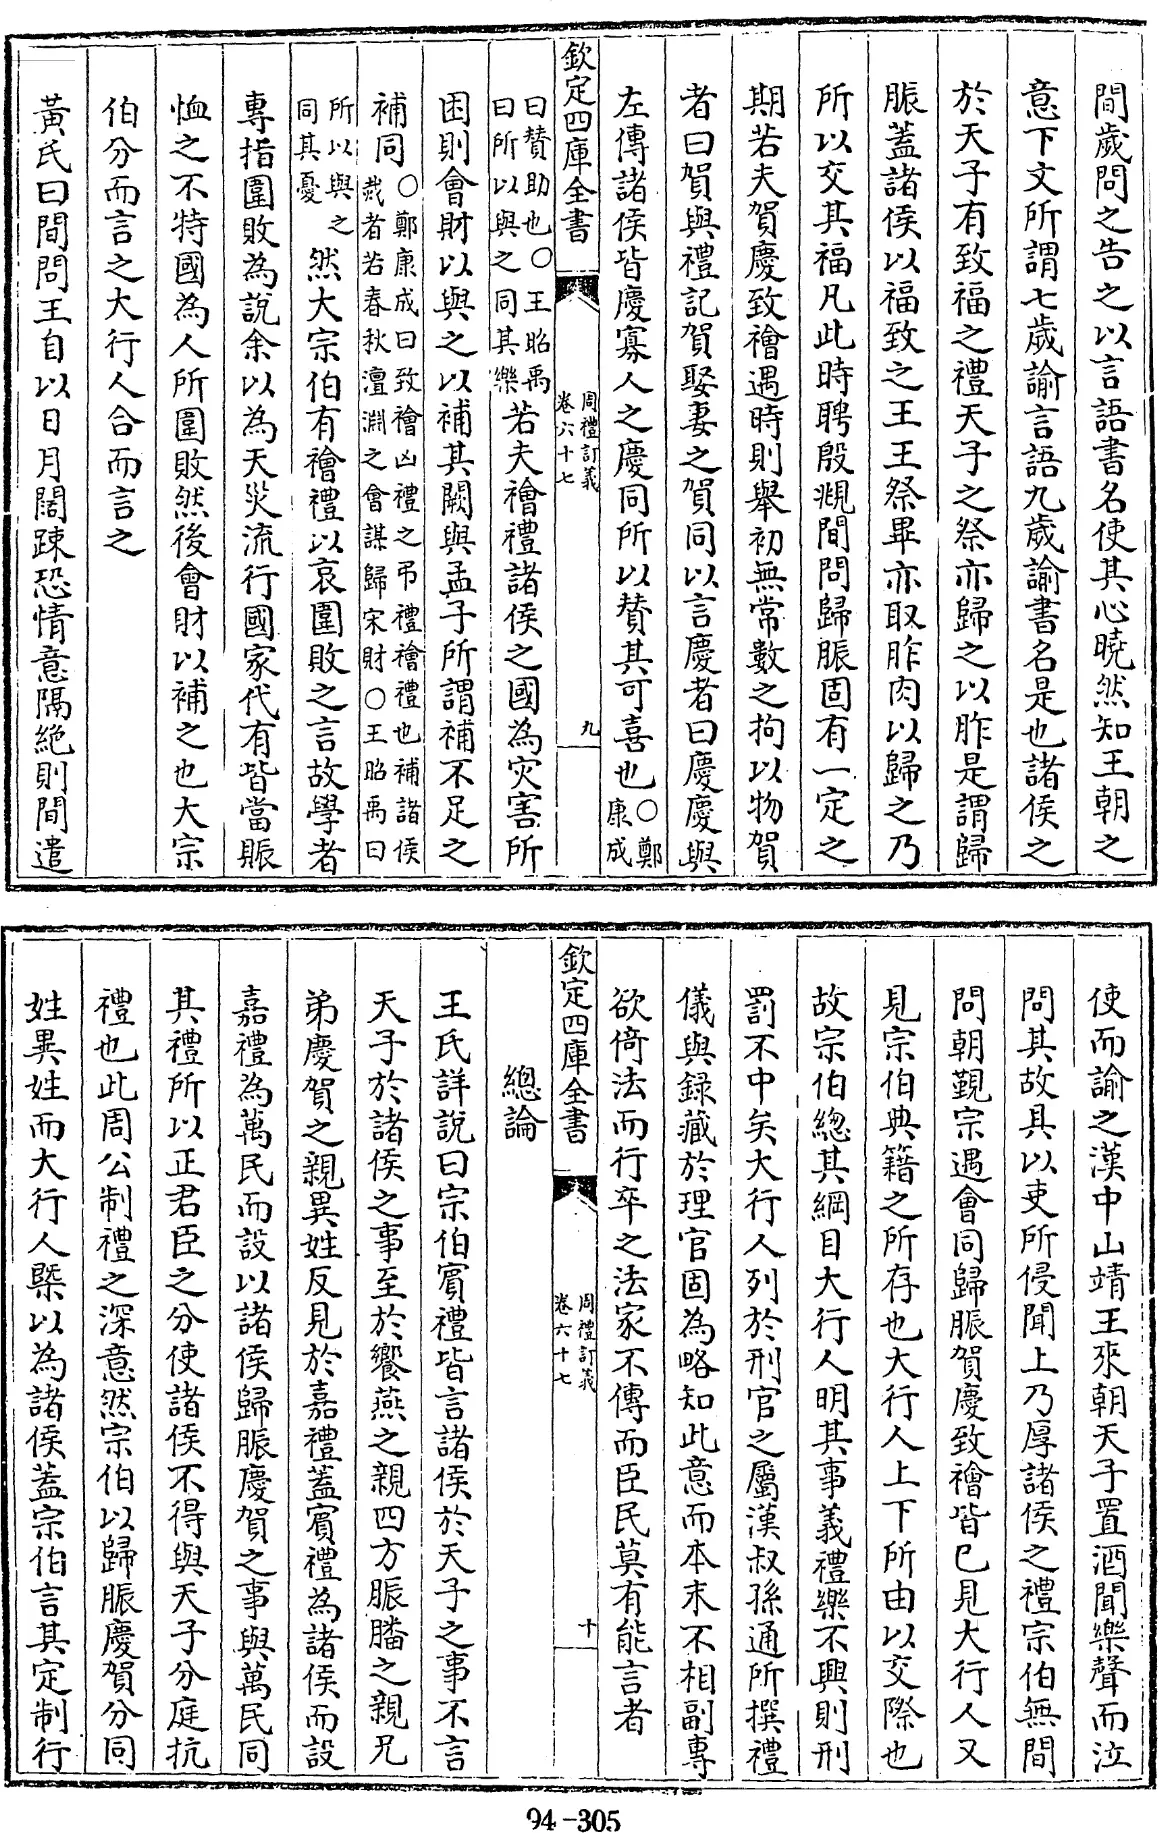 間歲問之告之以言語書名使其心曉然知王朝之
意下文所謂七歲諭言語九歲諭書名是也諸侯之
於天子有致福之禮天子之祭亦歸之以胙是謂歸
脤蓋諸侯以福致之王王祭畢亦取胙肉以歸之乃
所以交其福凡此時聘殷覜間問歸脤固有一定之
期若夫賀慶致禬遇時則舉初無常數之拘以物賀
者曰賀與禮記賀娶妻之賀同以言慶者曰慶慶與
左傳諸侯皆慶寡人之慶同所以贊其可喜也○鄭
康成
欽定四庫全書
周禮訂義
卷六十七
九
曰贊助也○王昭禹
曰所以與之同其樂若夫禬禮諸侯之國為灾害所
困則會財以與之以補其闕與孟子所謂補不足之
補同○鄭康成曰致禬凶禮之弔禮禬禮也補諸侯
烖者若春秋澶淵之會謀歸宋財○王昭禹曰
所以與之
同其憂然大宗伯有禬禮以哀圍敗之言故學者
專指圍敗為說余以為天災流行國家代有皆當賑
恤之不特國為人所圍敗然後會財以補之也大宗
伯分而言之大行人合而言之
黃氏曰間問王自以日月闊踈恐情意隔絶則間遣
使而諭之漢中山靖王來朝天子置酒聞樂聲而泣
問其故具以吏所侵聞上乃厚諸侯之禮宗伯無間
問朝覲宗遇會同歸脤賀慶致禬皆已見大行人又
見宗伯典籍之所存也大行人上下所由以交際也
故宗伯總其綱目大行人明其事義禮樂不興則刑
罰不中矣大行人列於刑官之屬漢叔孫通所撰禮
儀與錄藏於理官固為略知此意而本末不相副專
欲倚法而行卒之法家不傳而臣民莫有能言者
欽定四庫全書
周禮訂義
卷六十七
十
總論
王氏詳說曰宗伯賓禮皆言諸侯於天子之事不言
天子於諸侯之事至於饗燕之親四方脤膰之親兄
弟慶賀之親異姓反見於嘉禮蓋賓禮為諸侯而設
嘉禮為萬民而設以諸侯歸脤慶賀之事與萬民同
其禮所以正君臣之分使諸侯不得與天子分庭抗
禮也此周公制禮之深意然宗伯以歸脤慶賀分同
姓異姓而大行人槩以為諸侯蓋宗伯言其定制行
94-305